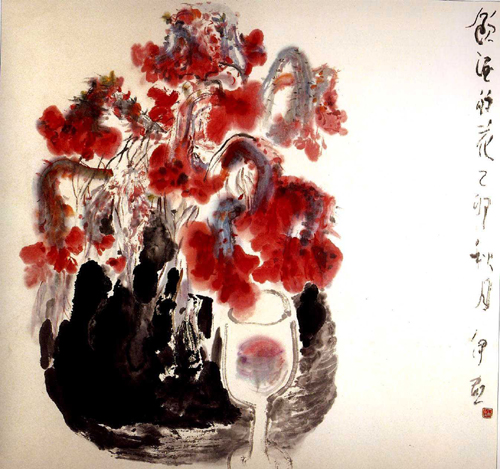 飲酒的花 卯秋月 伊